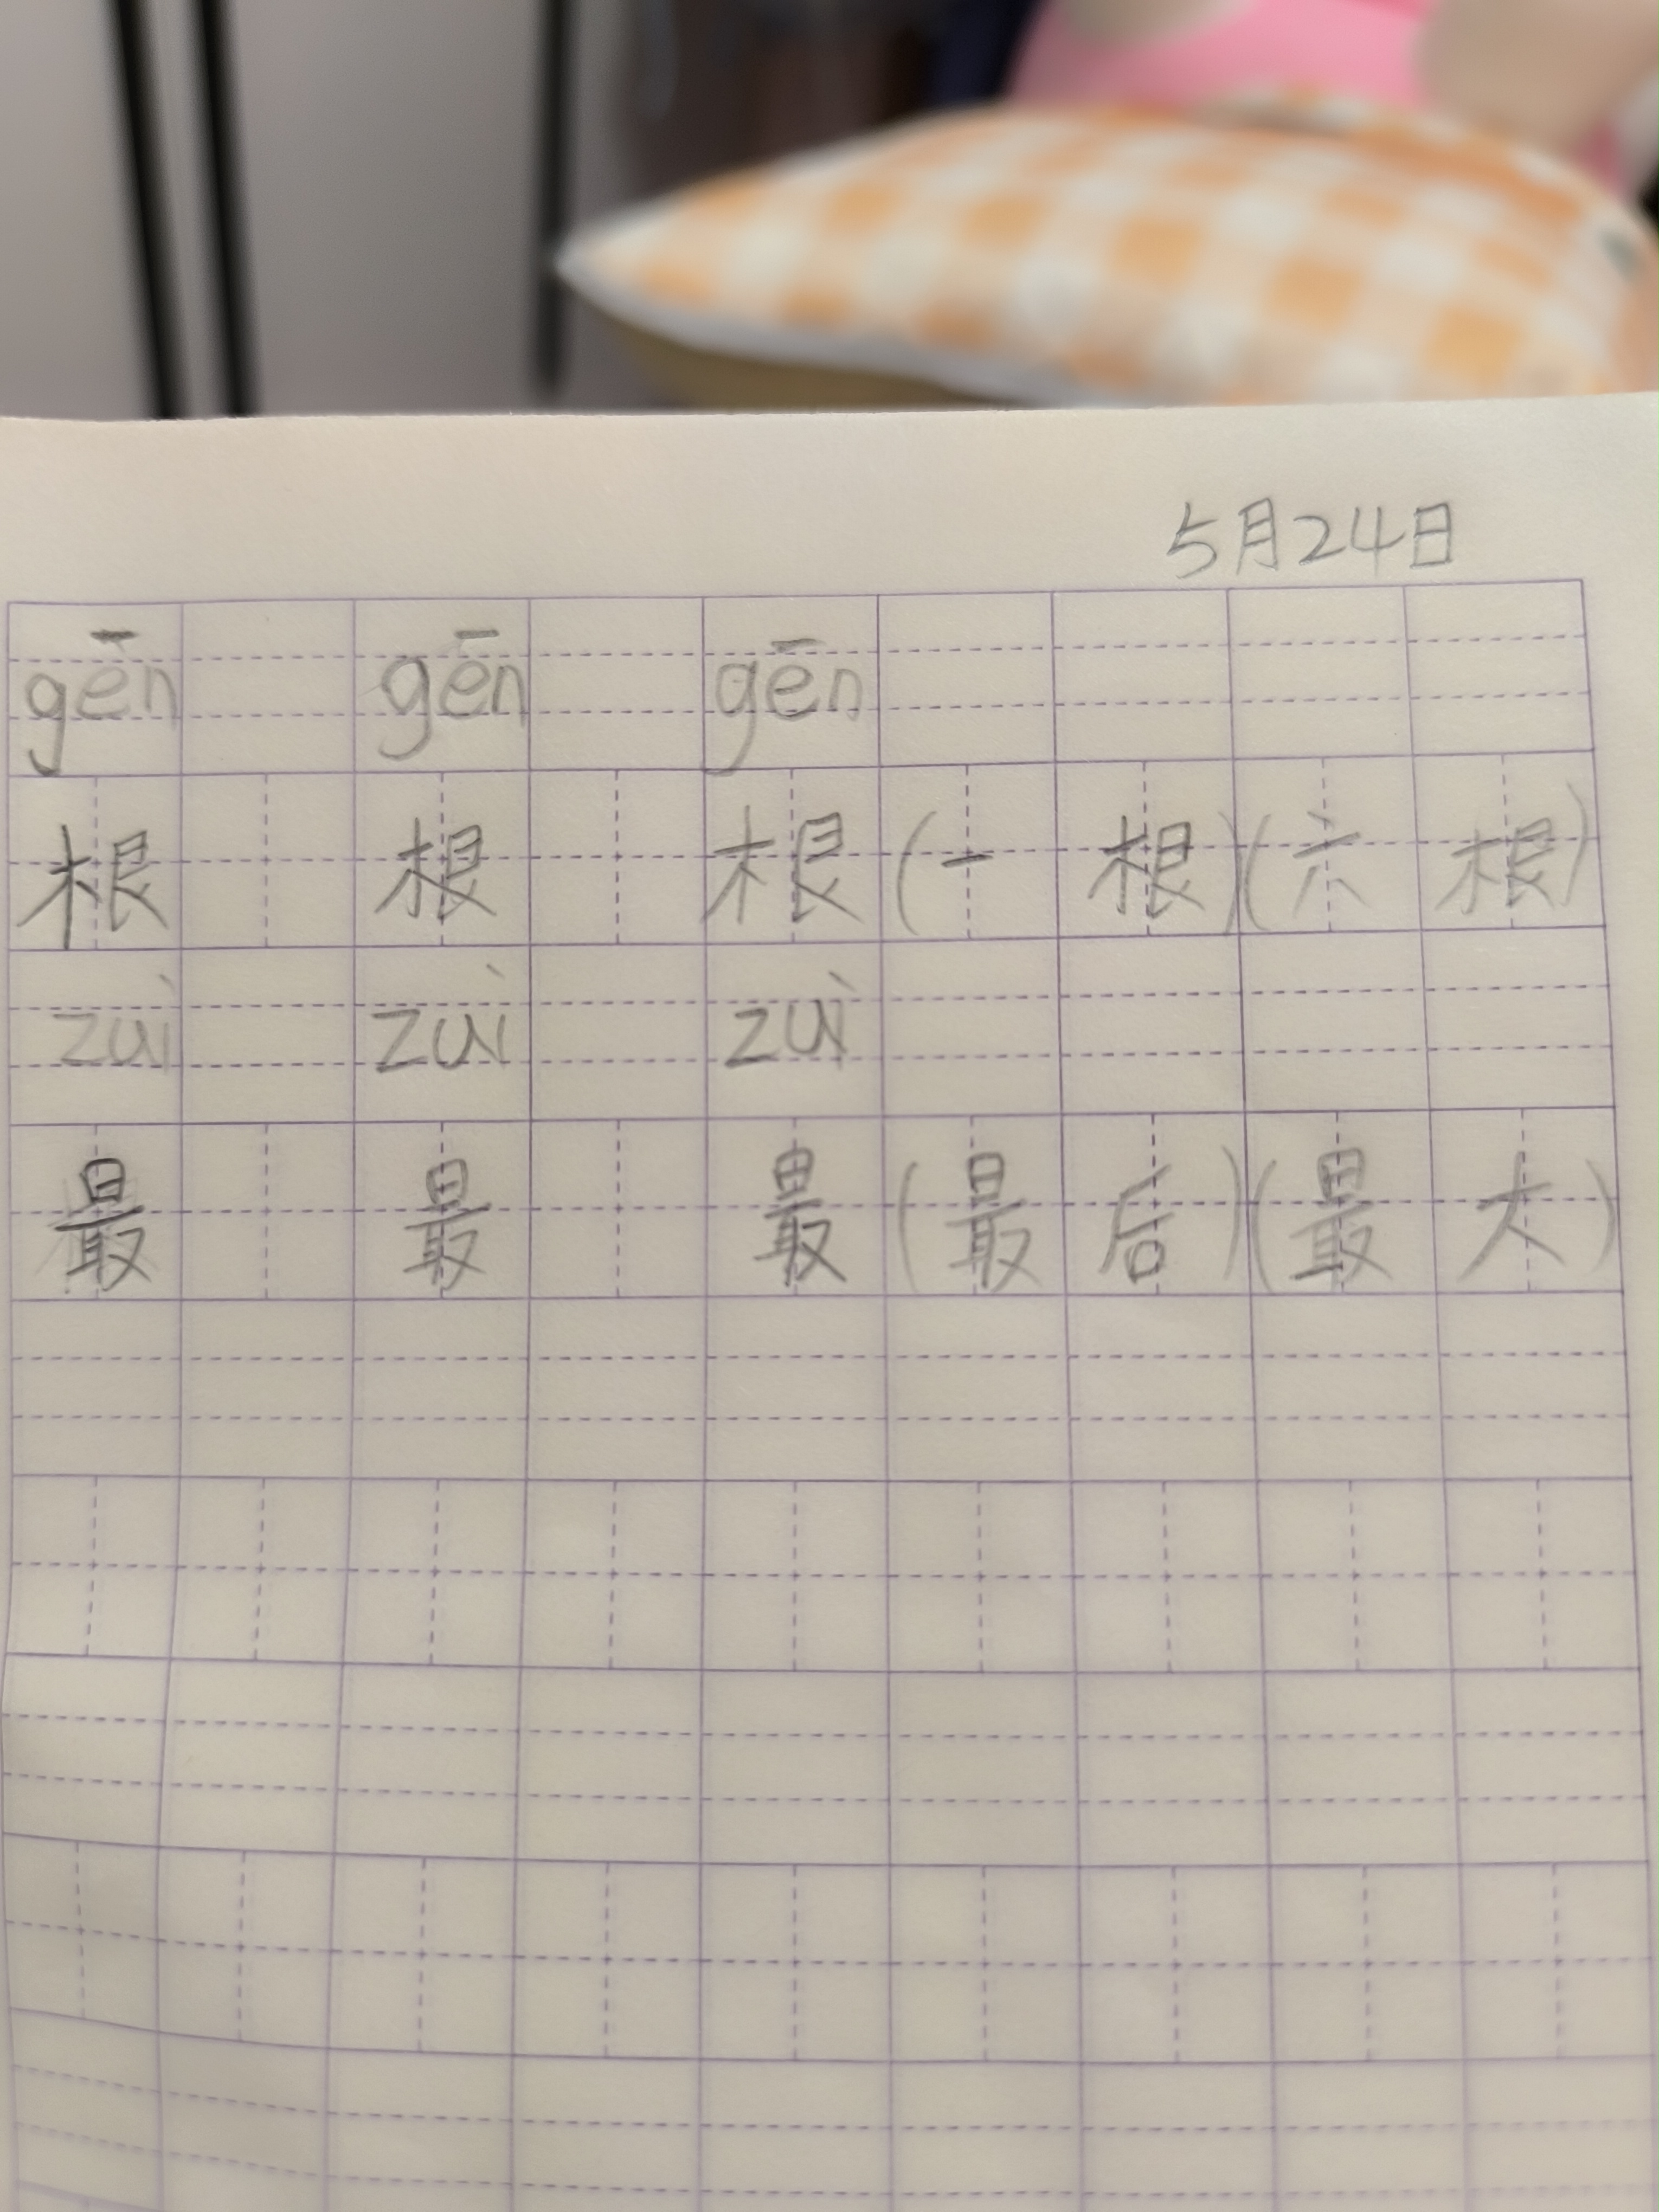 5月24日
gēn gēn gēn
根 根 根 (一根)(六根)
zuì zuì zuì
最 最 最 (最后)(最大)